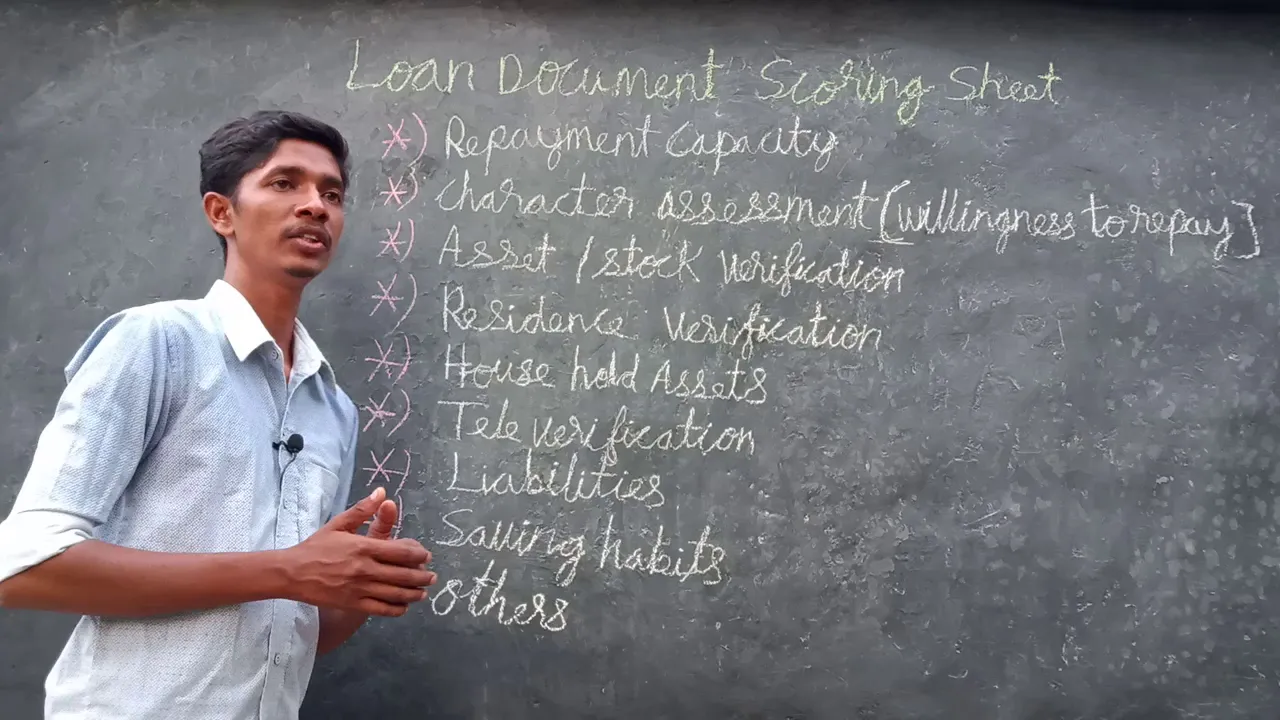 Loan Document Scoring Sheet
*) Repayment Capacity
*) Character assessment [willingness to repay]
*) Asset / stock verification
*) Residence verification
*) House hold Assets
*) Tele verification
*) Liabilities
) Saving habits
others